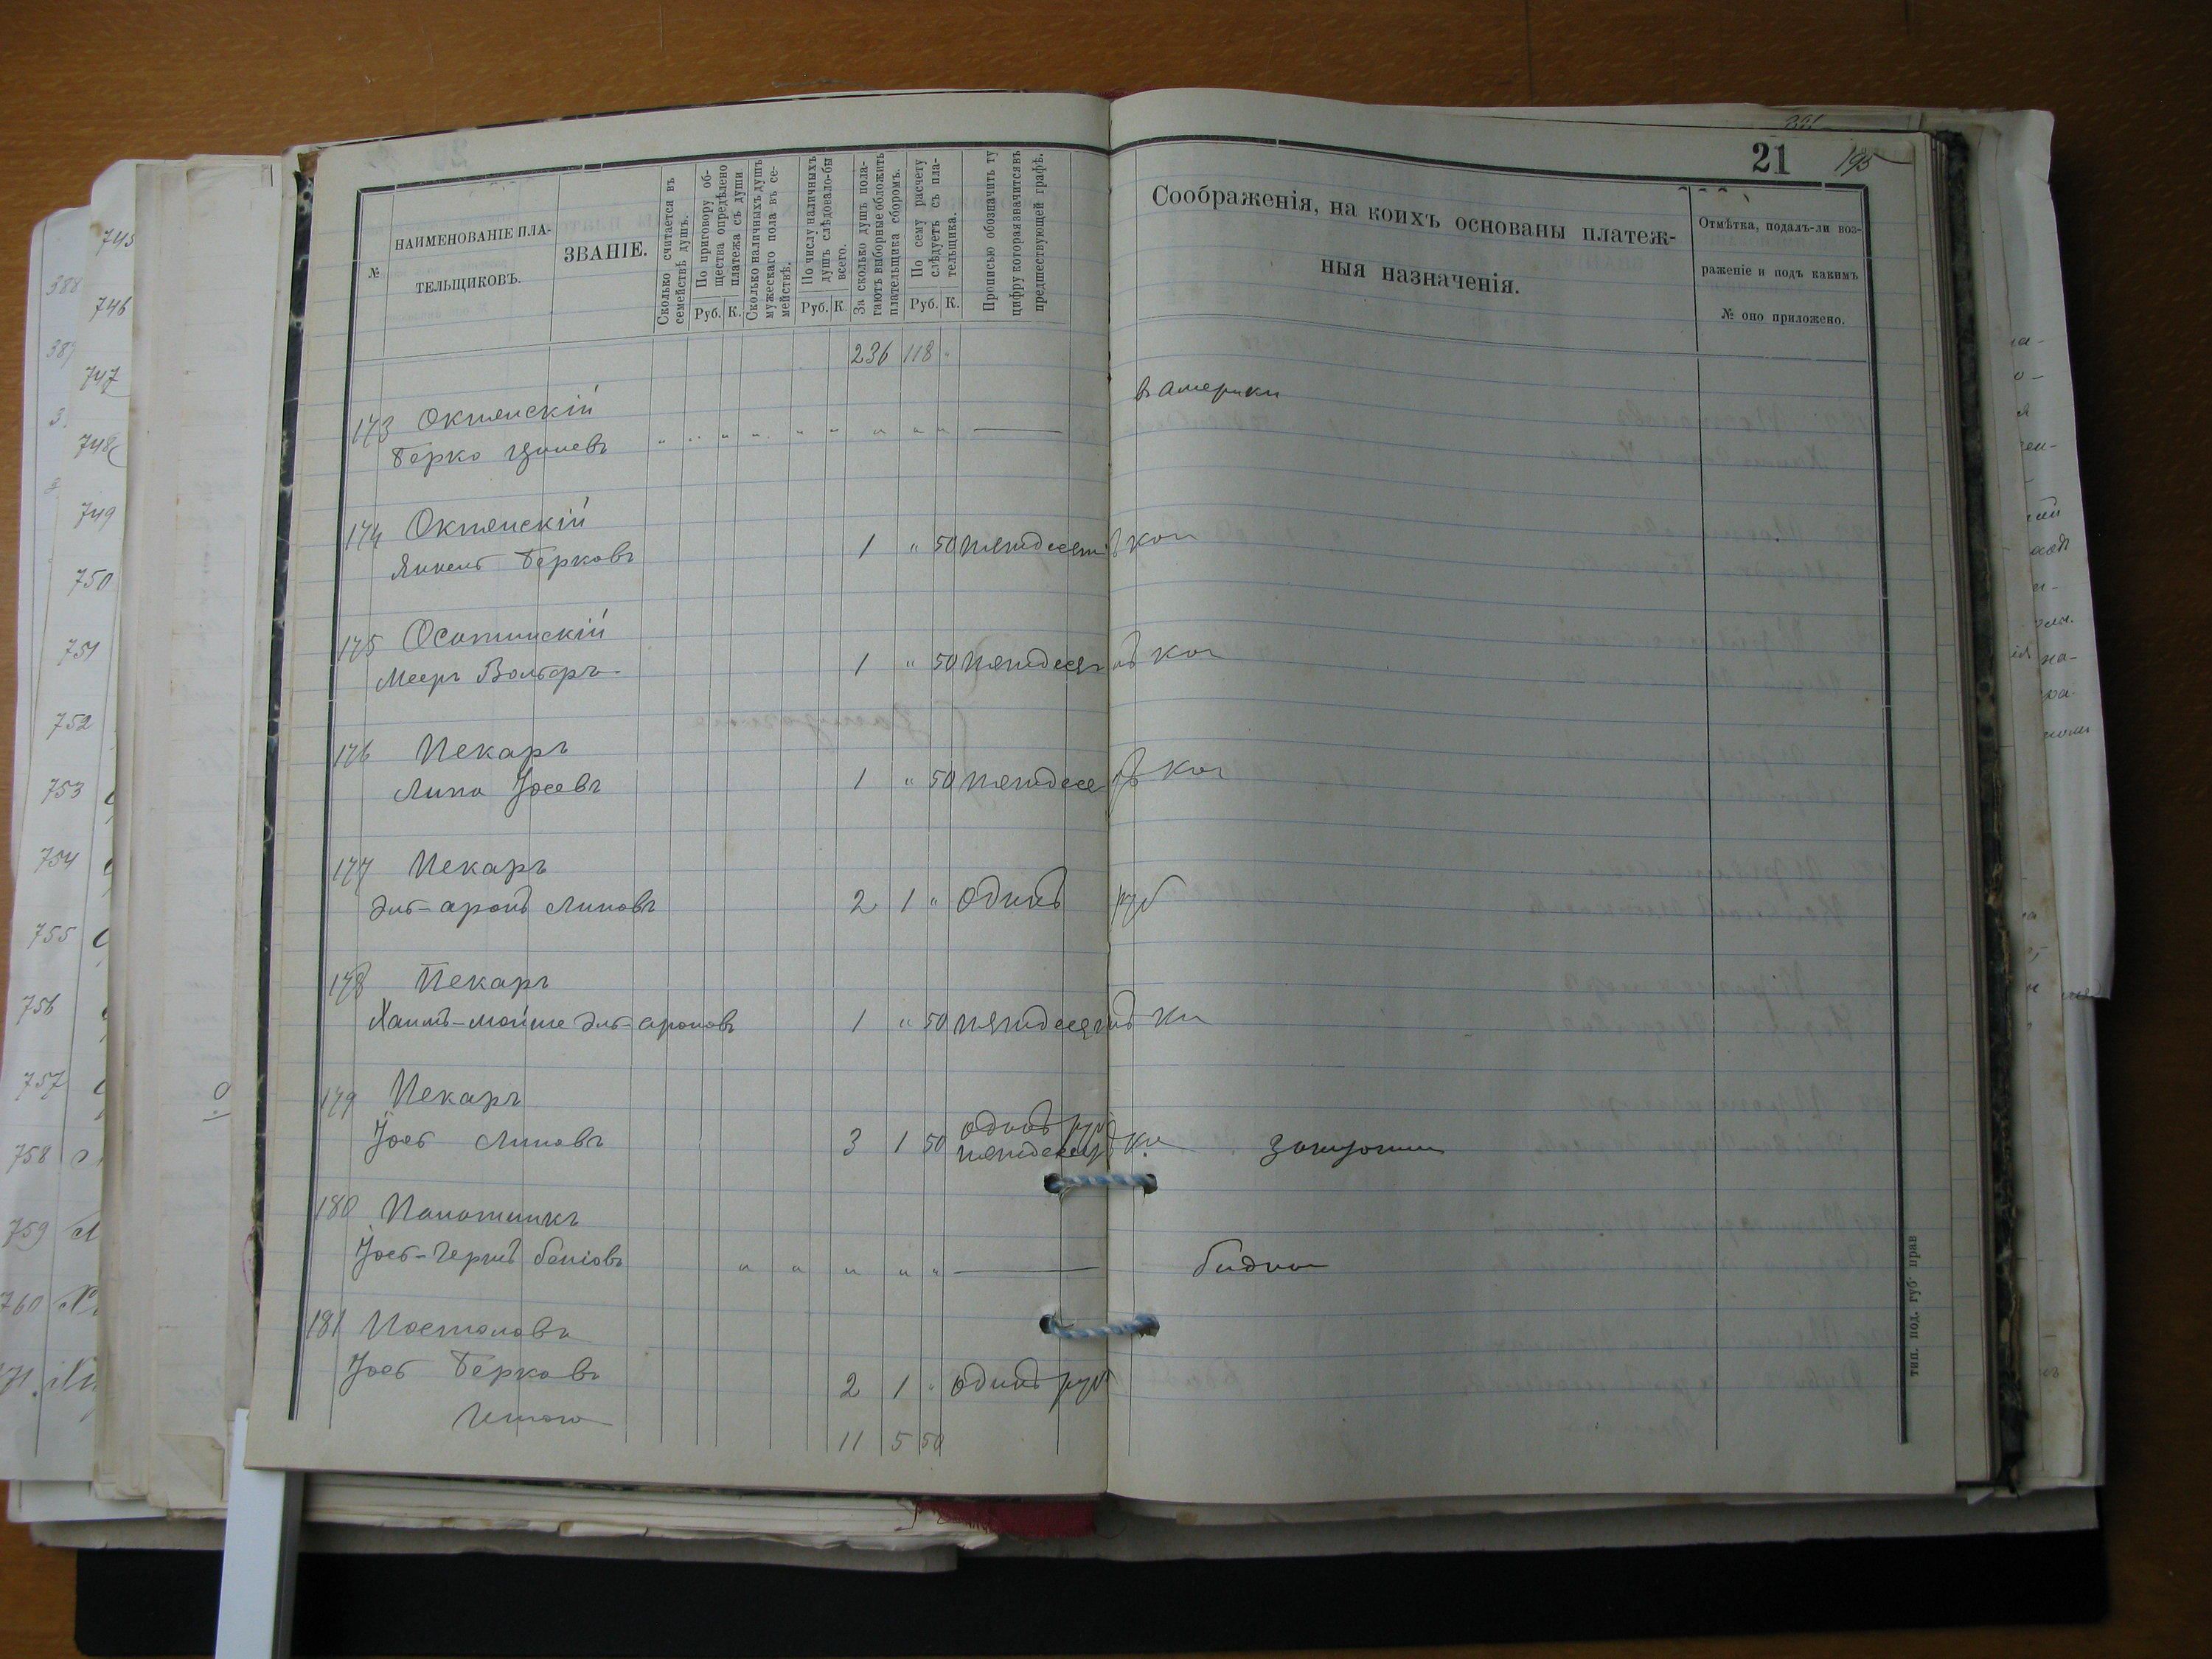 21 195
№
НАИМЕНОВАНІЕ ПЛА-
ТЕЛЬЩИКОВЪ.
ЗВАНІЕ.
Сколько считается въ
семействѣ душъ.
По приговору об-
щества опредѣлено
платежа съ души.
Руб. К.
Сколько наличныхъ душъ
мужескаго пола въ се-
мействѣ.
По числу наличныхъ
душъ слѣдовало-бы
всего.
Руб. К.
За сколько душъ пола-
гаютъ выборные обложить
плательщика сборомъ.
По сему расчету
слѣдуетъ съ пла-
тельщика.
Руб. К.
Прописью обозначить ту
цифру которая значится въ
предшествующей графѣ.
Соображенія, на коихъ основаны платеж-
ныя назначенія.
Отмѣтка, подалъ-ли воз-
раженіе и подъ какимъ
№ оно приложено.
236 118 "
173 Окнянскій в Америки
Берко " " " " " " " " "
174 Окнянскій
Янкель Берковъ 1 " 50 пятдесятъ коп
175 Осатинскій
Мееръ 1 " 50 пятдесятъ коп
176 Пекаръ
Липа Іосевъ 1 " 50 пятдесятъ коп
177 Пекаръ
Эль-аронъ Липовъ 2 1 " одинъ руб
178 Пекаръ
Хаимъ-мойше Эль-ароновъ 1 " 50 пятдесятъ кп
179 Пекаръ
Іосъ Липовъ 3 1 50 одинъ руб пятдесятъ кп
180
Іось-Гершъ " " " " " бидни
181 Постоловъ
Іось Берковъ 2 1 " одинъ руб
Итого
11 5 50
тип. под. губ. прав
745
746
747
748
749
750
751
752
753
754
755
756
757
758
759
760